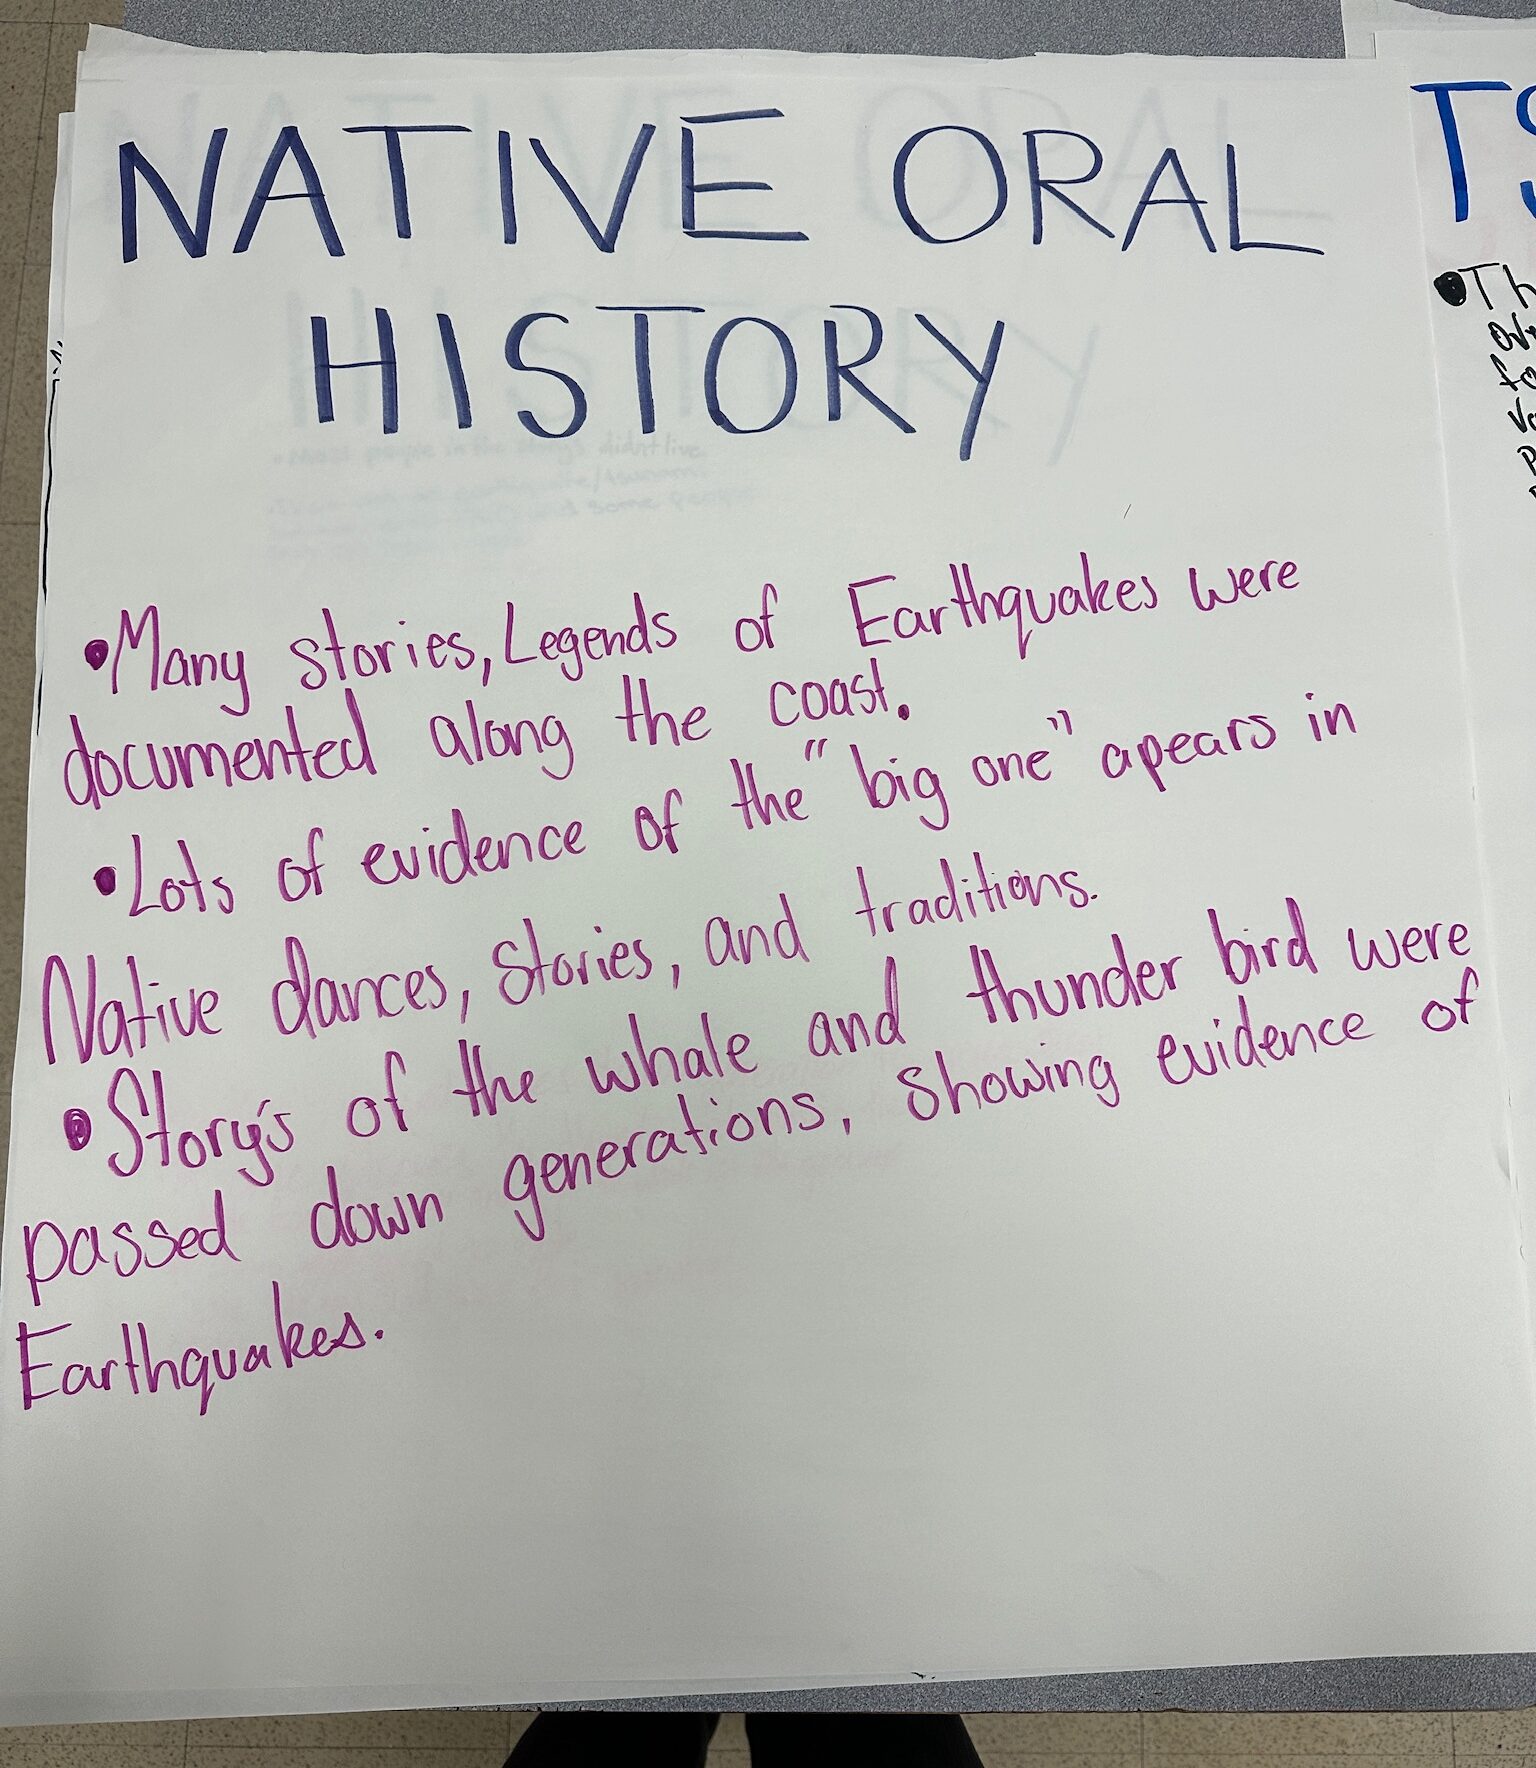 NATIVE ORAL
HISTORY
•Many stories, Legends of Earthquakes were
documented along the coast.
•Lots of evidence of the "big one" apears in
Native dances, stories, and traditions.
•Story's of the whale and thunder bird were
passed down generations, showing evidence of
Earthquakes.
TS
•Th